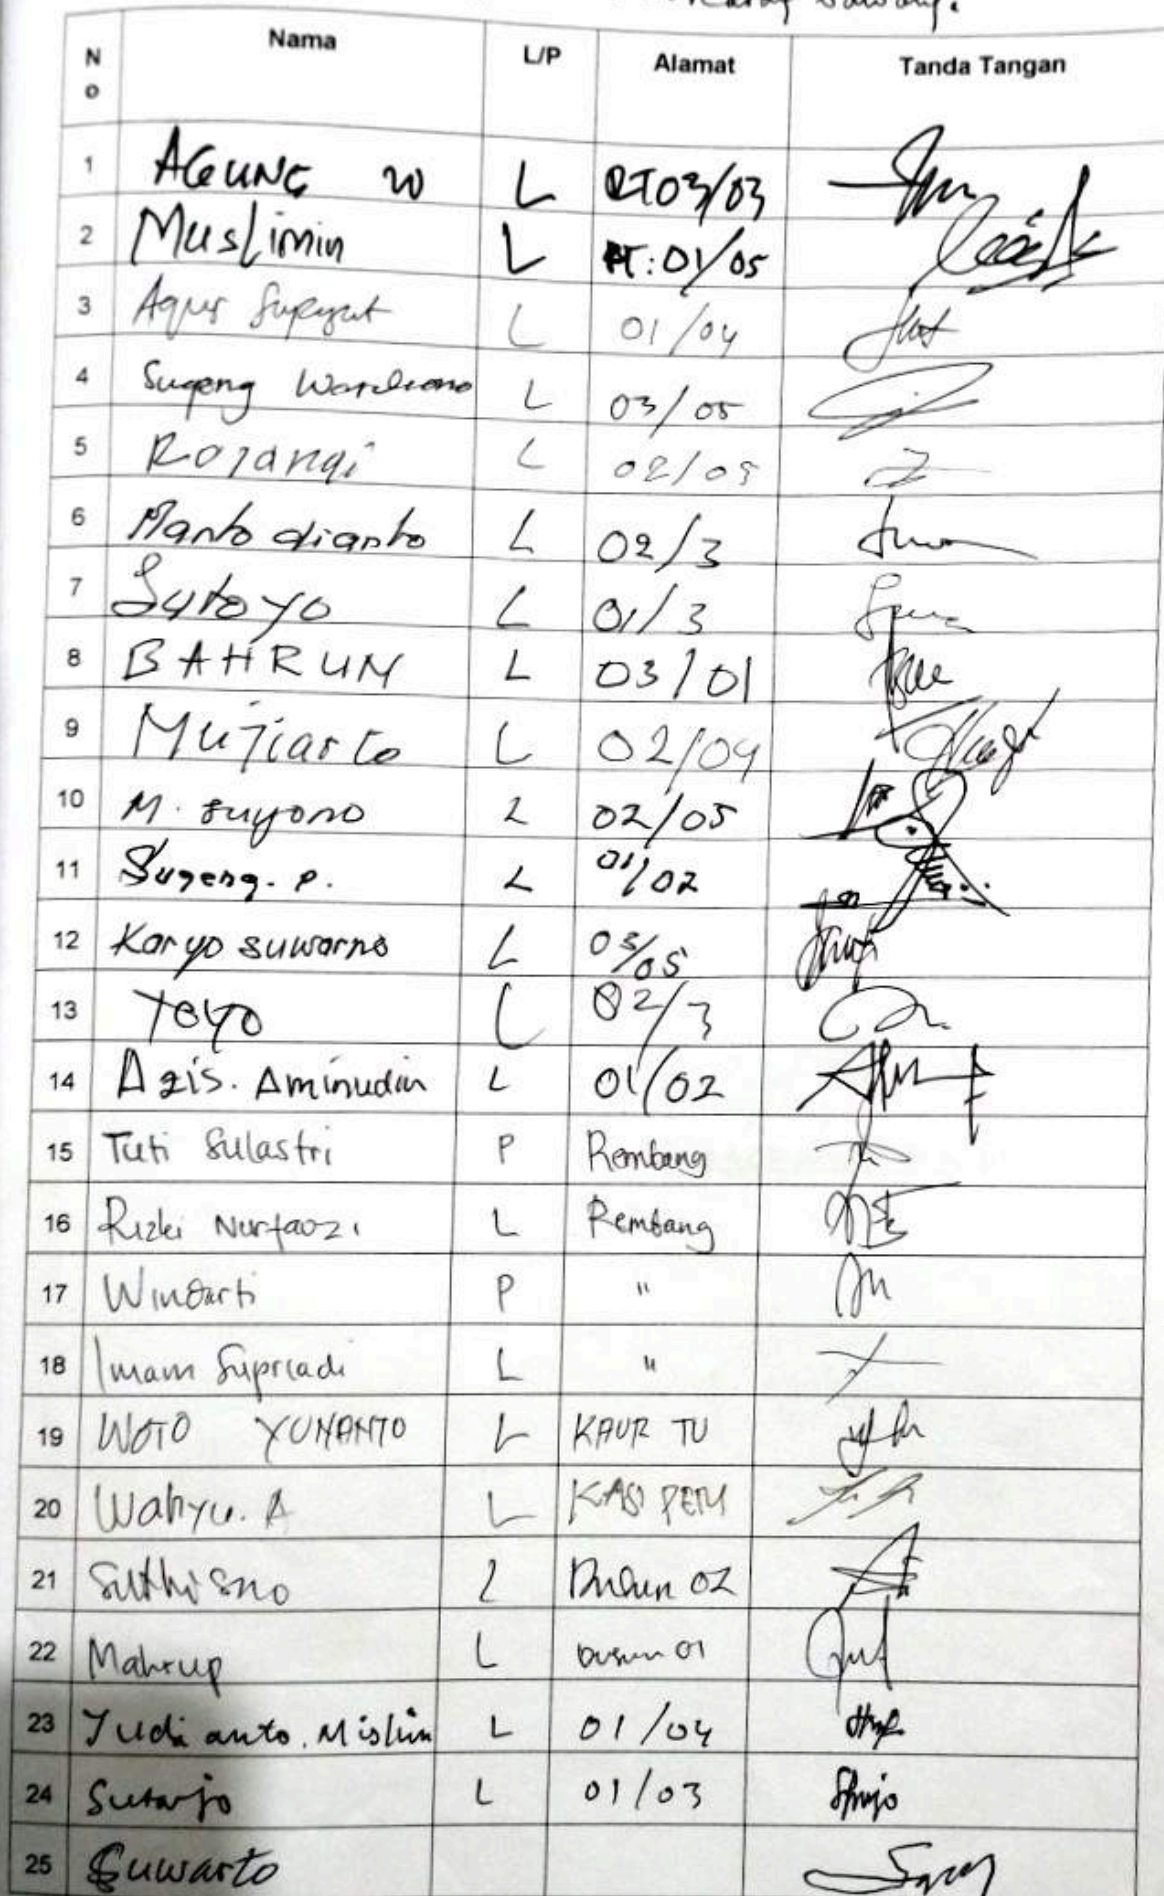 No Nama L/P Alamat Tanda Tangan
1 AGUNG W L RT 03/03
2 Muslimin L RT: 01/05
3 Agus Supeyut L 01/04
4 Sugeng Wardoono L 03/05
5 Rojangi L 02/05
6 Manto dianto L 02/3
7 Sutoyo L 01/3
8 BAHRUN L 03/01
9 Mujiarto L 02/04
10 M. Suyono L 02/05
11 Sugeng. P. L 01/02
12 Karyo suwarno L 03/05
13 Yoyo L 02/3
14 Azis. Aminudin L 01/02
15 Tuti Sulastri P Rembang
16 Rizki Nurfaozi L Rembang
17 Windarti P "
18 Imam Supriadi L "
19 WOTO YUNANTO L KAUR TU
20 Wahyu. A L KASI PEM
21 Sutrisno L Dusun 02
22 Mahrup L Dusun 01
23 Yudi anto. Mislim L 01/04
24 Sutarjo L 01/03
25 Suwarto